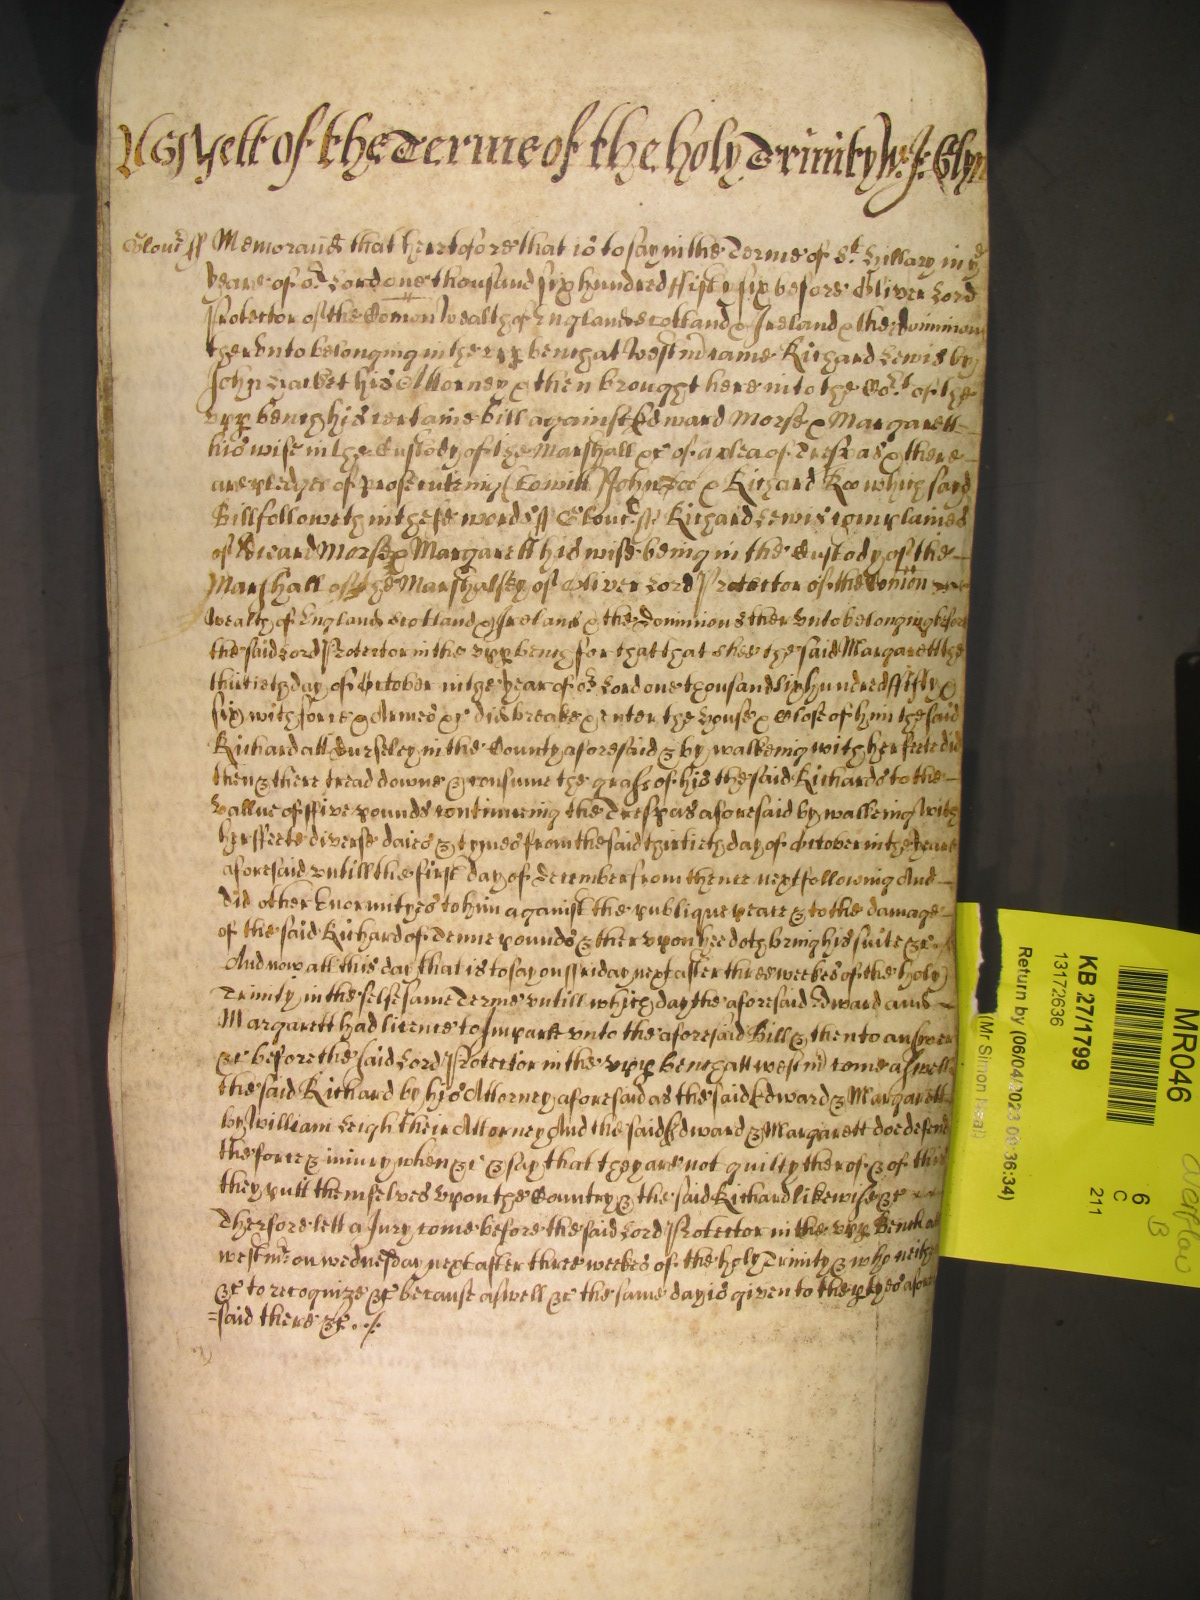 As yett of the Terme of the holy Trinity Wr: Jo: Glyn
Glouc ss Memorand that heretofore that is to say in the Terme of St. Hillary in ye
yeare of or Lord one thousand six hundred ffifty six before Oliver Lord
Protector of the Comon Wealth of England Scotland & Ireland & the Dominions
therunto belonging in the upp bench at Westmr came Richard Lewis by
John his Attorney & then brought here into the Cort of the
upp bench his certaine bill against Edward Morse & Margarett
his wife in the Custody of the Marshall &c of a plea of Trespas & there
are pledges of prosecuteing (to witt) John Doo & Richard Roo which said
Bill followeth in these words ss Glouc ss Richard Lewis complaines
of Edward Morse & Margarett his wife being in the Custody of the
Marshall of the Marshalsey of Oliver Lord Protector of the Comon
wealth of England Scotland & Ireland & the Dominions therunto belonging before
the said Lord Protector in the upp bench for that that shee the said Margarett the
thirtieth day of October in the year of or Lord one thousand six hundred ffifty &
six with force & Armes &c did breake & enter the house & Close of him the said
Richard att Dursley in the County aforesaid & by walkeing with her feete did
then & there tread downe & consume the grass of his the said Richards to the
vallue of ffive pounds continueing the Trespas aforesaid by walkeing with
her ffeete diverse daies & tymes from the said thirtieth day of October in the yeare
aforesaid untill the first day of December from thence next following And
did other Enormityes to him against the publique peace & to the damage
of the said Richard of Tenne pounds & therupon hee doth bring his suite &c
And now att this day that is to say on ffriday next after three weekes of the holy
Trinity in the selfe same Terme untill which day the aforesaid Edward and
Margarett had licence to Imparle unto the aforesaid Bill & then to answer
&c before the said Lord Protector in the upp bench att westmr come aswell
the said Richard by his Attorney aforesaid as the said Edward & Margarett
by William Leigh their Attorney And the said Edward & Margarett doe defend
the force & iniury when &c & say that they are not guilty therof & of this
they putt themselves upon the Country & the said Richard likewise &c
Therfore lett a Jury come before the said Lord Protector in the upp Bench att
westmr on wednesday next after three weekes of the holy Trinity & who neither
&c to recognize &c because aswell &c the same day is given to the ptyes afore
=said there &c
MR046
KB 27/1799
13172636
Return by (06/04/2023 09:36:34)
(Mr Simon Neal)
6
C
211
overflow
B